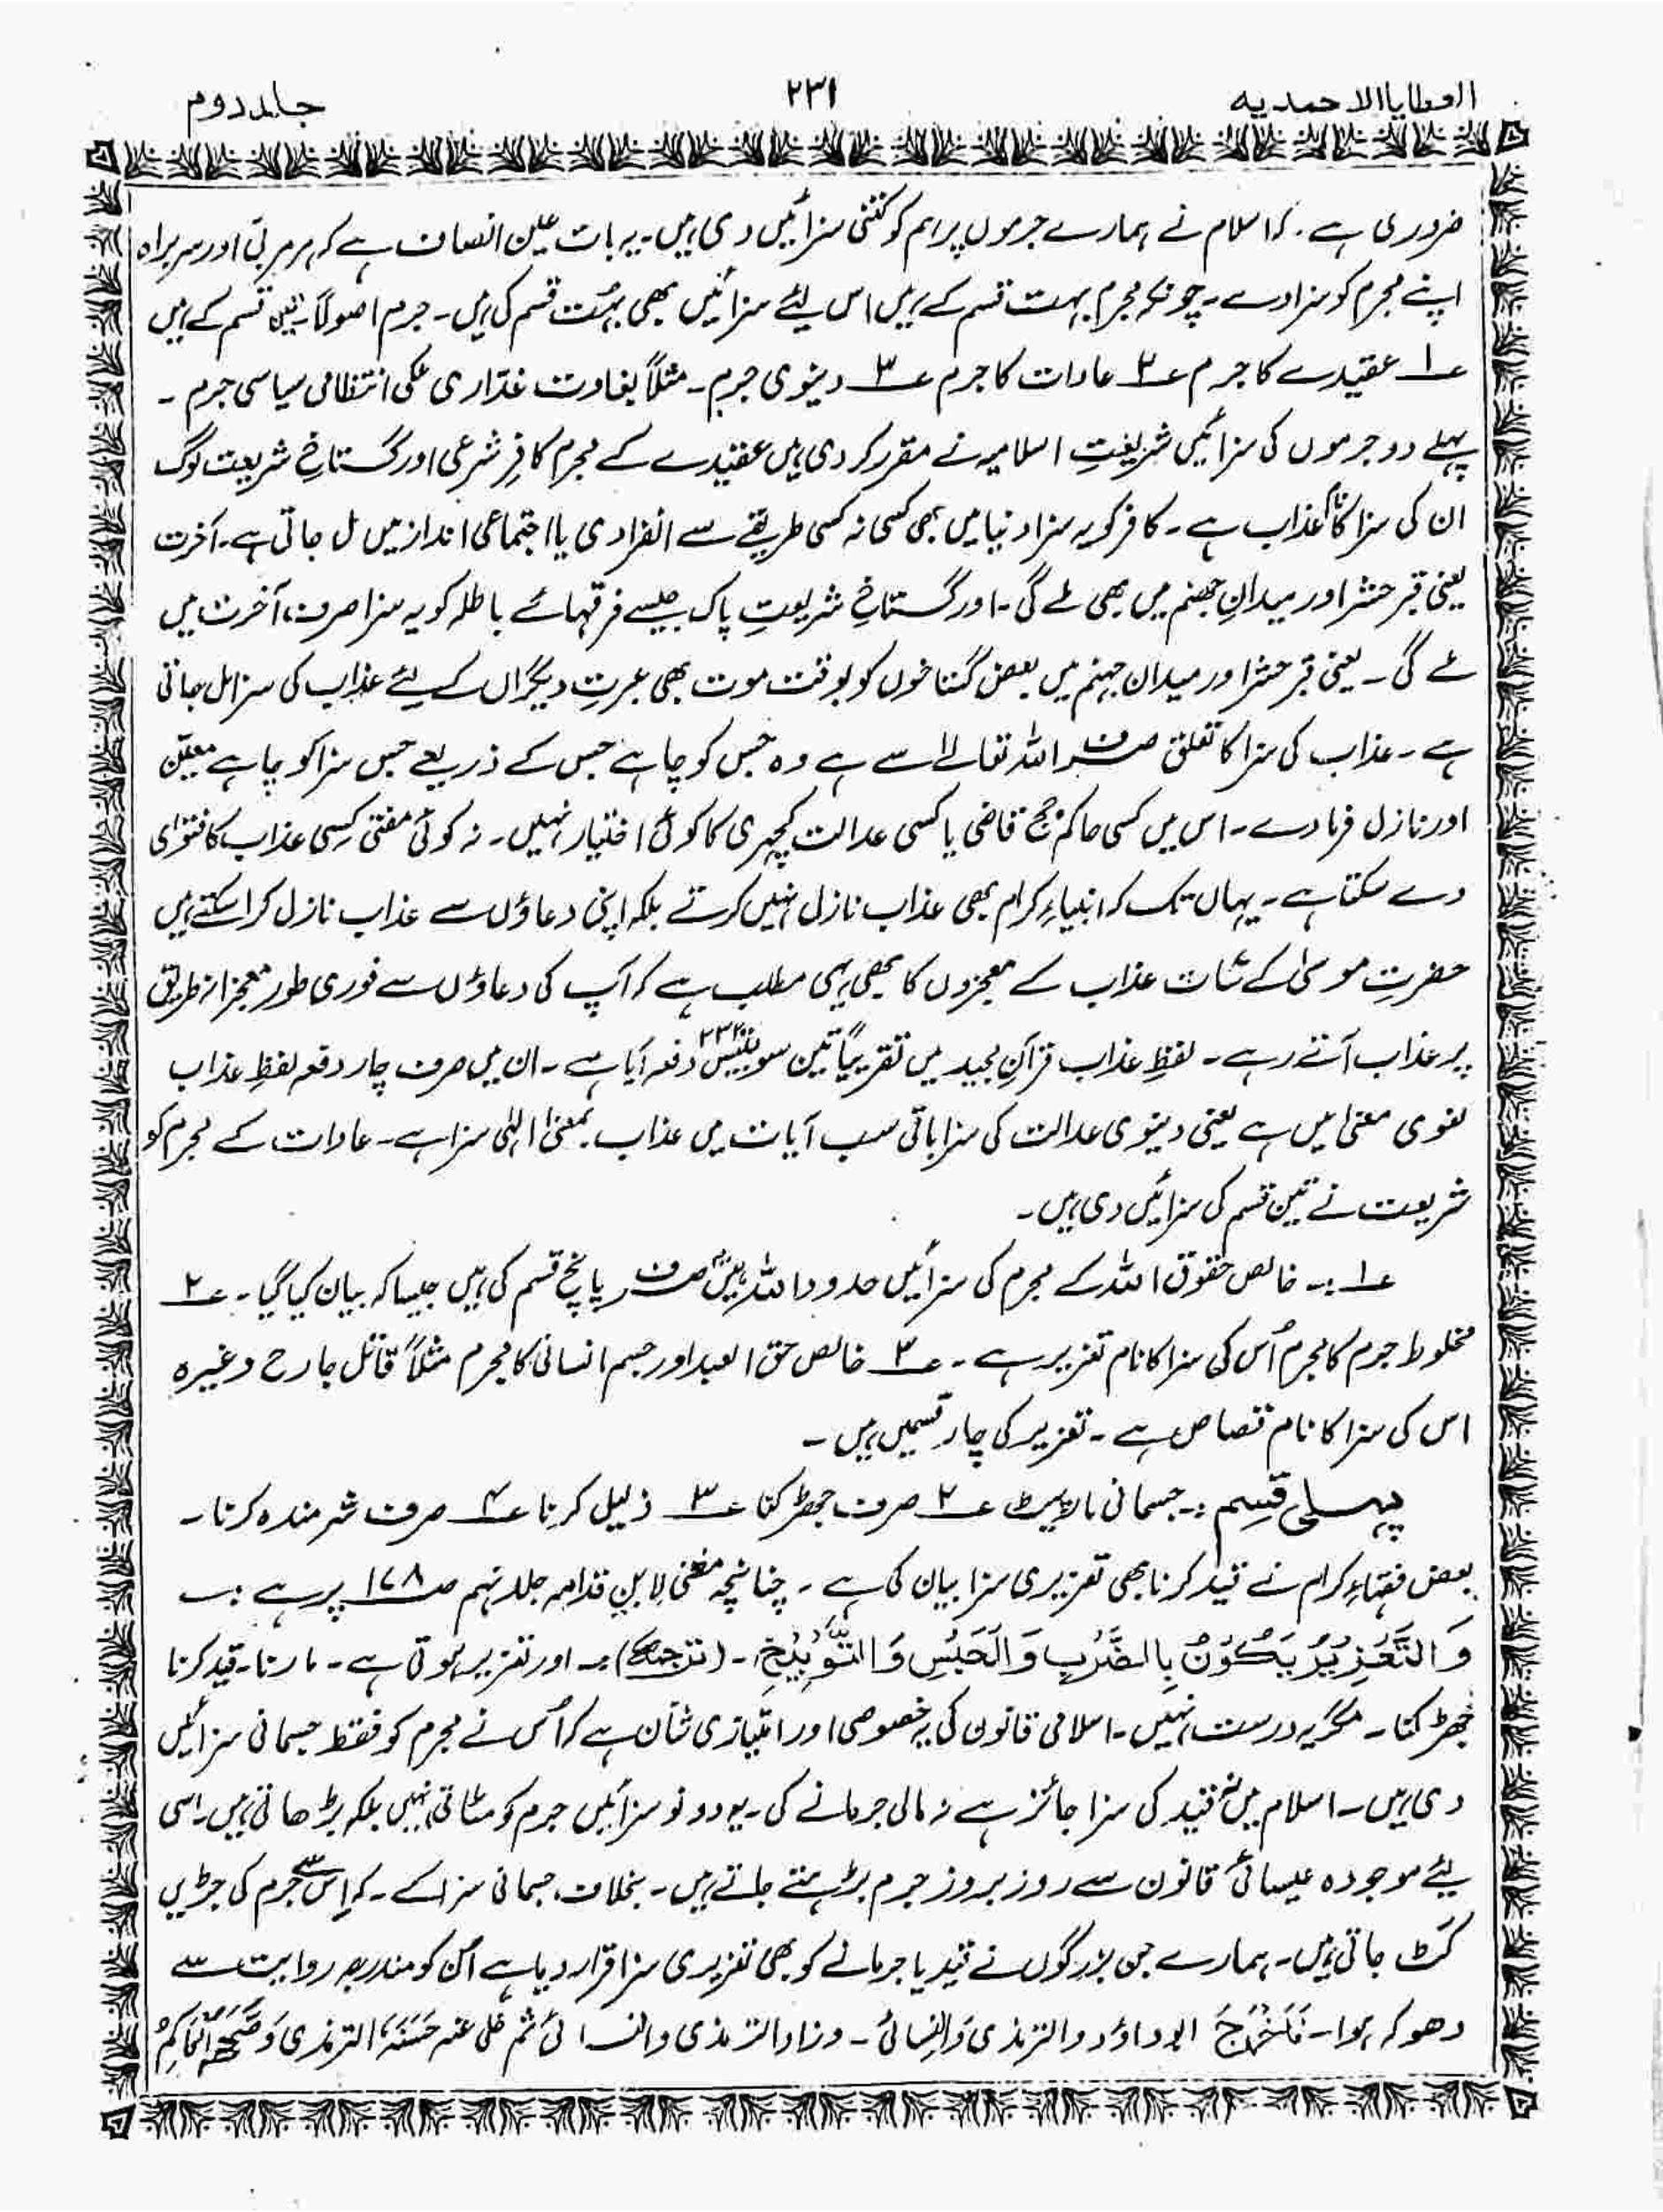 العطایا الاحمدیہ
۲۳۱
جلد دوم
ضروری ہے۔ کہ اسلام نے ہمارے جرموں پر ہم کو کتنی سزائیں دی ہیں۔ یہ بات عین انصاف ہے کہ ہر مربّی اور سربراہ
اپنے مجرم کو سزا دے۔ چونکہ مجرم بہت قسم کے ہیں اس لیئے سزائیں بھی بہُت قسم کی ہیں۔ جرم اصولاً تین قسم کے ہیں
۱؎ عقیدے کا جرم ۲؎ عادات کا جرم ۳؎ دینوی جرم۔ مثلاً بغاوت غدّاری ملکی انتظامی سیاسی جرم۔
پہلے دو جرموں کی سزائیں شریعتِ اسلامیہ نے مقرر کر دی ہیں عقیدے کے مجرم کافِر شرعی اور گستاخِ شریعت لوگ
ان کی سزا کا نام عذاب ہے۔ کافر کو یہ سزا دنیا میں بھی کسی نہ کسی طریقے سے انفرادی یا اجتماعی انداز میں مل جاتی ہے۔ آخرت
یعنی قبر حشر اور میدانِ جہنم میں بھی ملے گی۔ اور گستاخِ شریعتِ پاک جیسے فرقہائے باطلہ کو یہ سزا صرف آخرت میں
ملے گی۔ یعنی قبر حشر اور میدان جہنم میں بعض گستاخوں کو بوقت موت بھی عبرتِ دیگراں کے لیئے عذاب کی سزا مل جاتی
ہے۔ عذاب کی سزا کا تعلق صرف اللہ تعالےٰ سے ہے وہ جس کو چاہے جس کے ذریعے جس سزا کو چاہے معیّن
اور نازل فرما دے۔ اس میں کسی حاکم جج قاضی یا کسی عدالت کچہری کا کوئی اختیار نہیں۔ نہ کوئی مفتی کِسی عذاب کا فتوٰی
دے سکتا ہے۔ یہاں تک کہ انبیاءِ کرام بھی عذاب نازل نہیں کرتے بلکہ اپنی دعاؤں سے عذاب نازل کرا سکتے ہیں
حضرتِ موسیٰ کے سات عذاب کے معجزوں کا بھی یہی مطلب ہے کہ آپ کی دعاؤں سے فوری طور معجزانہ طریق
پر عذاب آتے رہے۔ لفظِ عذاب قرآنِ مجید میں تقریباً تین سو بتیس ۳۳۲ دفعہ آیا ہے۔ ان میں صرف چار دفعہ لفظِ عذاب
لغوی معنیٰ میں ہے یعنی دینوی عدالت کی سزا باقی سب آیات میں عذاب بمعنیٰ الٰہی سزا ہے۔ عادات کے مجرم کو
شریعت نے تین قسم کی سزائیں دی ہیں۔
۱؎:۔ خالص حقوق اللہ کے مجرم کی سزائیں حدود اللہ ہیں صرف پانچ قسم کی ہیں جیسا کہ بیان کیا گیا۔ ۲؎
مخلوط جرم کا مجرم اُس کی سزا کا نام تعزیر ہے۔ ۳؎ خالص حق العبد اور جسم انسانی کا مجرم مثلاً قاتل جارح وغیرہ
اس کی سزا کا نام قصاص ہے۔ تعزیر کی چار قسمیں ہیں۔
پہلی قسم:۔ جسمانی مار پیٹ ۲؎ صرف جھڑکنا ۳؎ ذلیل کرنا ۴؎ صرف شرمندہ کرنا۔
بعض فقہاءِ کرام نے قید کرنا بھی تعزیری سزا بیان کی ہے۔ چنانچہ مغنی لابنِ قدامہ جلد نہم صـ ۱۷۸ پر ہے :۔
وَ التَّعْزِیْرُ یَکُوْنُ بِالضَّرْبِ وَ الْحَبْسِ وَ التَّوْبِیْخِ۔ (ترجمہ):۔ اور تعزیر ہوتی ہے۔ مارنا۔ قید کرنا
جھڑکنا۔ مگر یہ درست نہیں۔ اسلامی قانون کی یہ خصوصی اور امتیازی شان ہے کہ اُس نے مجرم کو فقط جسمانی سزائیں
دی ہیں۔ اسلام میں نہ قید کی سزا جائز ہے نہ مالی جرمانے کی۔ یہ دونو سزائیں جرم کو مٹاتی نہیں بلکہ بڑھاتی ہیں۔ اسی
لیئے موجودہ عیسائی قانون سے روز بروز جرم بڑہتے جاتے ہیں۔ بخلاف جسمانی سزا کے۔ کہ اِس سے جرم کی جڑیں
کَٹ جاتی ہیں۔ ہمارے جن بزرگوں نے قید یا جرمانے کو بھی تعزیری سزا قرار دیا ہے اُن کو مندرجہ روایت سے
دھوکہ ہوا۔ فَاَخْرَجَ ابوداؤد والترمذی والنسائی۔ وزاد الترمذی والنسائی ثم خلی عنہ حَسَنَہٗ الترمذی وَصَحَّحَہُ الْحَاکِمُ